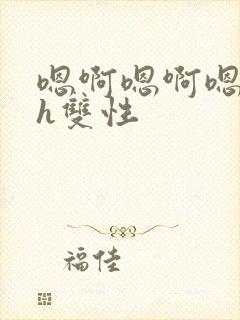 嗯啊嗯啊嗯
h雙性
福佳